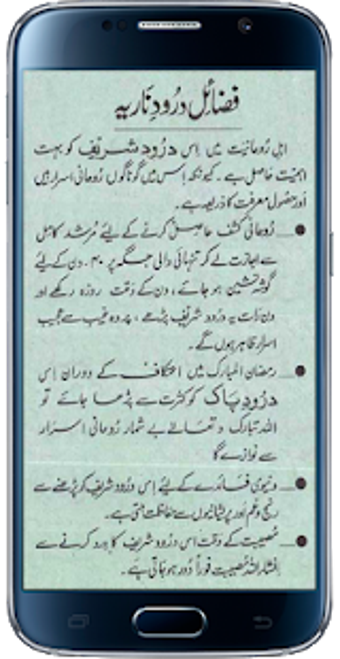 فضائل درودِ ناریہ
اہلِ رُوحانیت میں اِس درود شریف کو بہت
اہمیت حاصل ہے۔ کیونکہ اِس میں گوناگوں رُوحانی اسرار ہیں
اور حصولِ معرفت کا ذریعہ ہے۔
رُوحانی کشف حاصل کرنے کے لیئے مُرشد کامل
سے اجازت لے کر تنہائی والی جگہ پر ۴۰ دن کے لیئے
گوشہ نشین ہو جائے، دن کے وقت روزہ رکھے اور
دن رات یہ درود شریف پڑھے، پردہ غیب سے عجیب
اسرار ظاہر ہوں گے۔
رمضان المبارک میں اعتکاف کے دوران اِس
درودِ پاک کو کثرت سے پڑھا جائے تو
اللہ تبارک و تعالےٰ بے شمار رُوحانی اسرار
سے نوازے گا
دنیوی فائدے کے لیئے اِس درود شریف کو پڑھنے سے
رنج و غم اور پریشانیوں سے حفاظت ملتی ہے۔
مصیبت کے وقت اس درود شریف کا ورد کرنے سے
انشاءاللہ مصیبت فوراً دُور ہو جاتی ہے۔